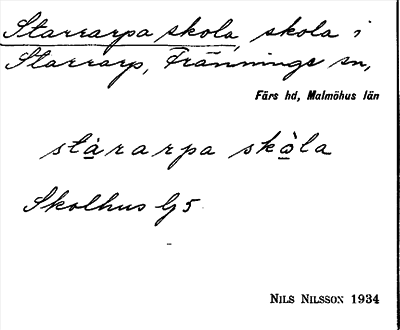 Starrarpa skola, skola i
Starrarp, Fränninge sn,
Färs hd, Malmöhus län
stàrarpa skòla
Skolhus G5
NILS NILSSON 1934